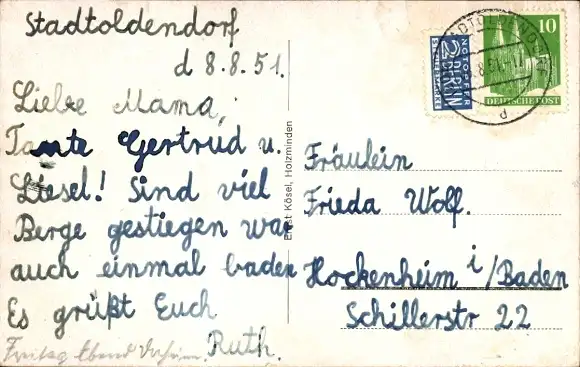 Stadtoldendorf
d 8.8.51.
Liebe Mama,
Tante Gertrud u.
Liesel! Sind viel
Berge gestiegen war
auch einmal baden
Es grüßt Euch
Ruth.
Freitag Abend
Ernst Kösel, Holzminden
NOTOPFER
2 BERLIN
STEUERMARKE
10
DEUTSCHE POST
STADTOLDENDORF
d
Fräulein
Frieda Wolf.
Hockenheim i/Baden
Schillerstr 22